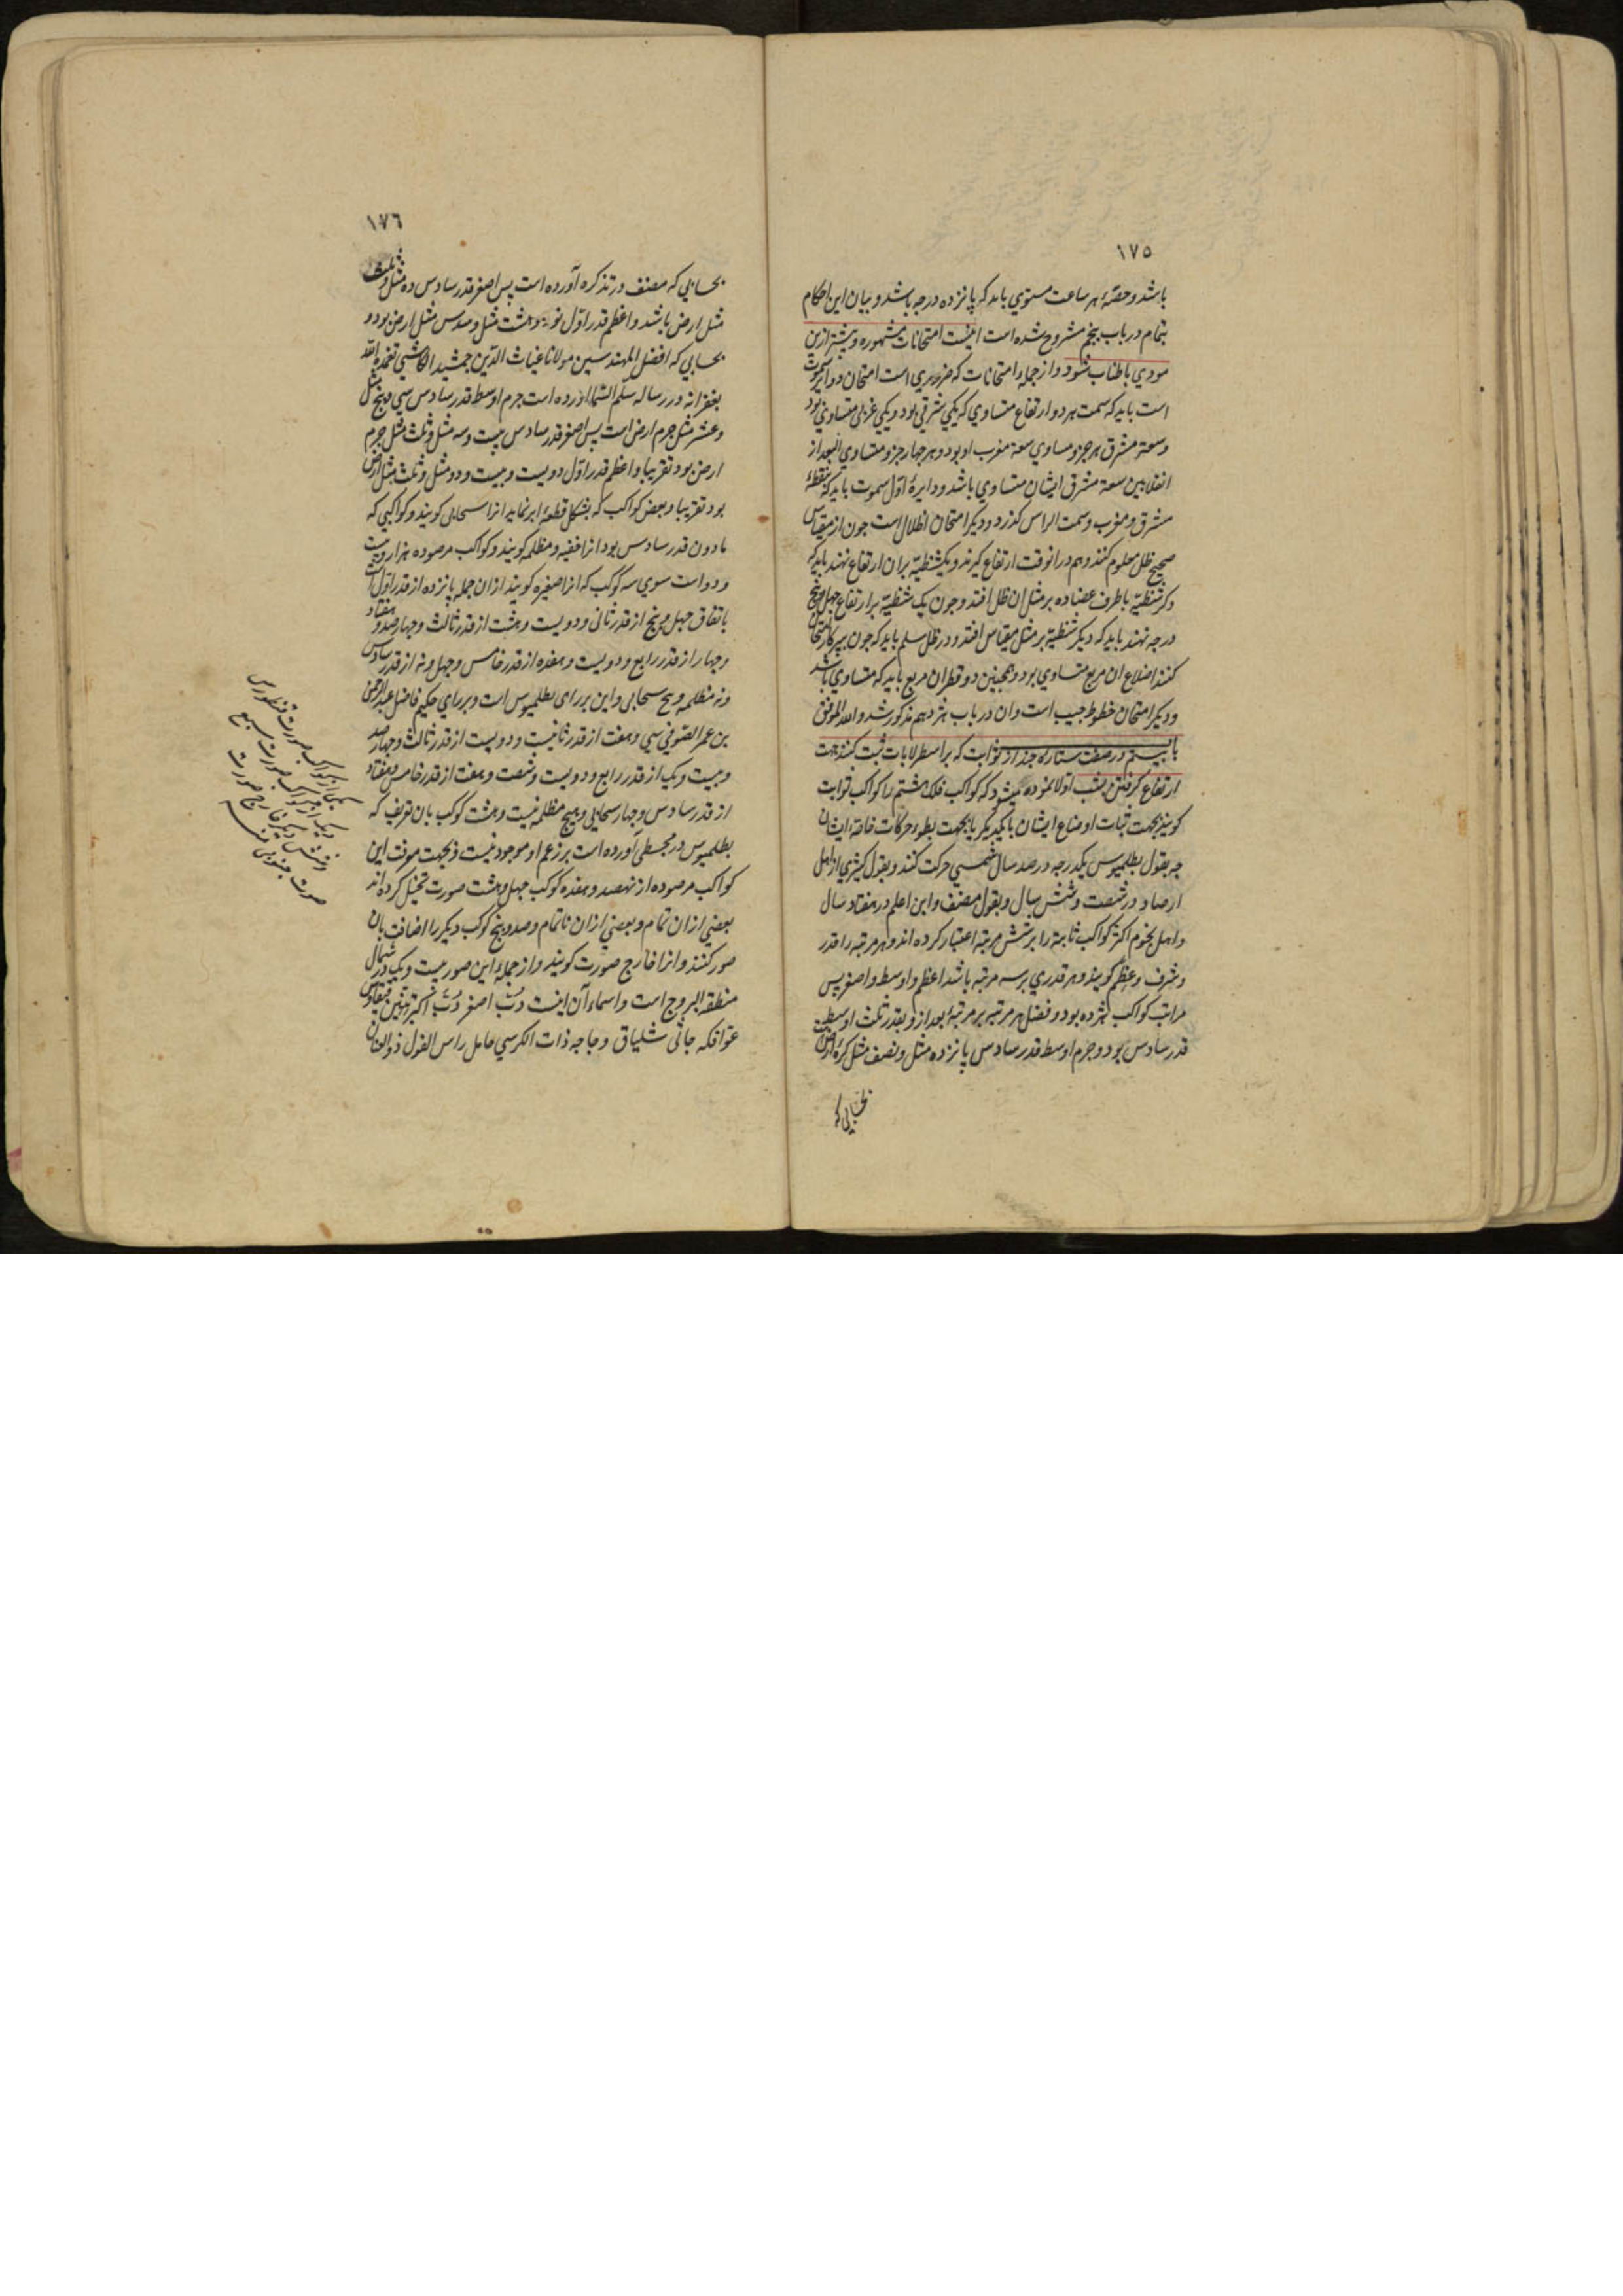 ١٧٥
باشد و حصّهٔ هر ساعت مستوي بايد كه پانزده درجه باشد و بيان اين احكام
بتمام در باب پنجم مشروح شده است اينست امتحانات مشهوره و بيشتر ازين
مودي باطناب شود و از جملهٔ امتحانات كه ضروري است امتحان دواير سموت
است بايد كه سمت هر دو ارتفاع متساوي كه يكي شرقي بود و يكي غربي متساوي بود
و سعة مشرق هر جزو مساوي سعة مغرب او بود و هر چهار جزو متساوي البعد از
انقلابين سعة مشرق ايشان متساوي باشد و دايرهٔ اوّل سموت بايد كه بنقطهٔ
مشرق و مغرب و سمت الراس گذرد و ديكر امتحان اظلال است چون از مقياس
صحيح ظل معلوم كنند و هم در انوقت ارتفاع كيرند و يك شظيّه بران ارتفاع نهند بايد كه
دكر شظيّه با طرف عضاده بر مثل ان ظل افتد و چون يك شظيّه بر ارتفاع چهل و پنج
درجه نهند بايد كه ديكر شظيّه بر مثل مقياس افتد و در ظل سلم بايد كه چون بپركار امتحان
كنند اضلاع ان مربع متساوي بود و همچنين دو قطر ان مربع بايد كه متساوي باشد
و ديكر امتحان خطوط جيب است و ان در باب هژدهم مذكور شد و الله الموفق
باب بيستم در صفت ستارهٔ چند از ثوابت كه بر اسطرلابات ثبت كنند جهت
ارتفاع كرفتن بشب اولا نموده ميشود كه كواكب فلك هشتم را كواكب ثوابت
كويند بجهت ثبات اوضاع ايشان با يكديكر يا بجهت بطوء حركات خاصهٔ ايشان
چه بقول بطلميوس يكدرجه در صد سال شمسي حركت كنند و بقول اكثري از اهل
ارصاد در شصت و شش سال و بقول مصنف و ابن اعلم در هفتاد سال
و اهل نجوم اكثر كواكب ثابته را بر شش مرتبه اعتبار كرده اند و هر مرتبه را قدر
و شرف و عظم كويند و هر قدري بر سه مرتبه باشد اعظم و اوسط و اصغر پس
مراتب كواكب هژده بود و فضل هر مرتبه بر مرتبهٔ بعد از و بقدر ثلث اوسط
قدر سادس بود و جرم اوسط قدر سادس پانزده مثل و نصف مثل كرهٔ ارض است
بحسابي كه
١٧٦
بحسابي كه مصنف در تذكره آورده است پس اصغر قدر سادس ده مثل و ثلث
مثل ارض باشد و اعظم قدر اوّل نود و هشت مثل و سدس مثل ارض بود و
بحسابي كه افضل المهندسين مولانا غياث الدّين جمشيد الكاشي تغمده الله
بغفرانه در رساله سلّم السّما آورده است جرم اوسط قدر سادس سي و پنج مثل
و عشر مثل جرم ارض است پس اصغر قدر سادس بيست و سه مثل و ثلث مثل جرم
ارض بود تقريبا و اعظم قدر اوّل دويست و بيست و دو مثل و ثلث مثل ارض
بود تقريبا و بعض كواكب كه بشكل قطعهٔ ابر نمايد انرا سحابي كويند و كواكبي كه
مادون قدر سادس بود انرا خفيه و مظلمه كويند و كواكب مرصوده هزار و بيست
و دو است سوي سه كوكب كه انرا صفيره كويند ازان جمله پانزده از قدر اوّل است
باتفاق چهل و پنج از قدر ثاني و دويست و هشت از قدر ثالث و چهارصد و هفتاد
و چهار از قدر رابع و دويست و هفده از قدر خامس و چهل و نه از قدر سادس
و نه مظلمه و پنج سحابي و اين بر راي بطلميوس است و بر راي حكيم فاضل عبد الرحمن
بن عمر الصّوفي سي و هفت از قدر ثانيست و دويست از قدر ثالث و چهارصد
و بيست و يك از قدر رابع و دويست و شصت و هفت از قدر خامس و هفتاد
از قدر سادس و چهار سحابي و هيچ مظلمه نيست و هشت كوكب بان تعريف كه
بطلميوس در مجسطي آورده است بر زعم او موجود نيست و بجهت معرفت اين
كواكب مرصوده از نهصد و هفده كوكب چهل و هشت صورت تخيّل كرده اند
بعضي ازان تمام و بعضي ازان ناتمام و صد و پنج كوكب ديكر را اضافت بان
صور كنند و انرا خارج صورت كويند و از جملهٔ اين صور بيست و يك در شمال
منطقة البروج است و اسماء آن اينست دبّ اصغر دبّ اكبر تنّين قيقاوس
عوّا فكه جاثي شلياق دجاجه ذات الكرسي حامل راس الغول ذو العنان
يكي از كواكب صورت قنطورس
و يك از كواكب صورت سبع
و شش ديكر خارج صورت
صورت جنوبي